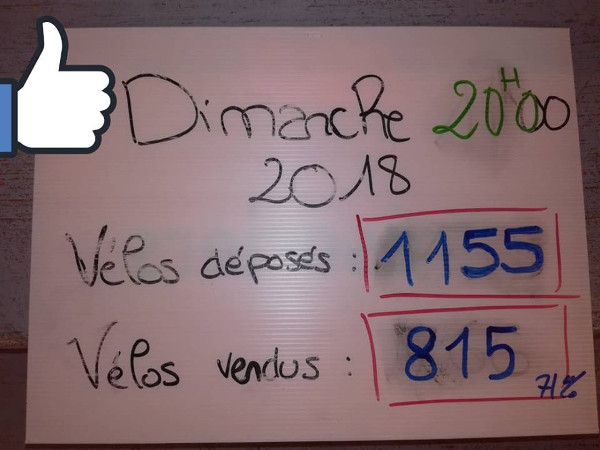 Dimanche 20H00
2018
Vélos déposés : 1155
Vélos vendus : 815
71%